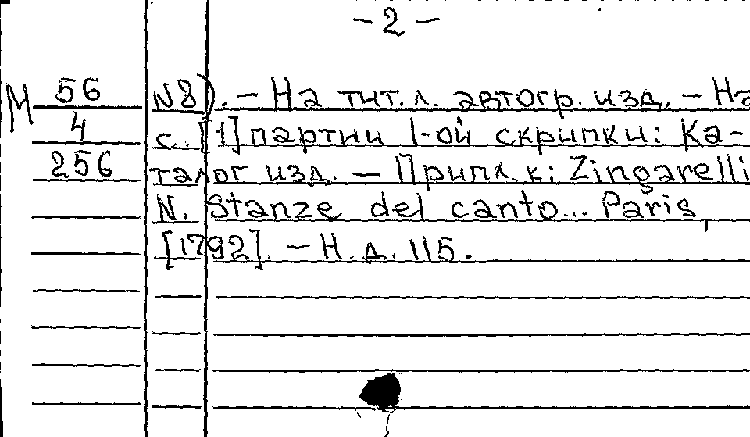 - 2 -
М 56 N8). - На тит. л. автогр. изд. - На
4 с. [1] партии 1-ой скрипки: Ка-
256 талог изд. - Припл. к: Zingarelli
N. Stanze del canto... Paris,
[1792]. - Н. д. 115.